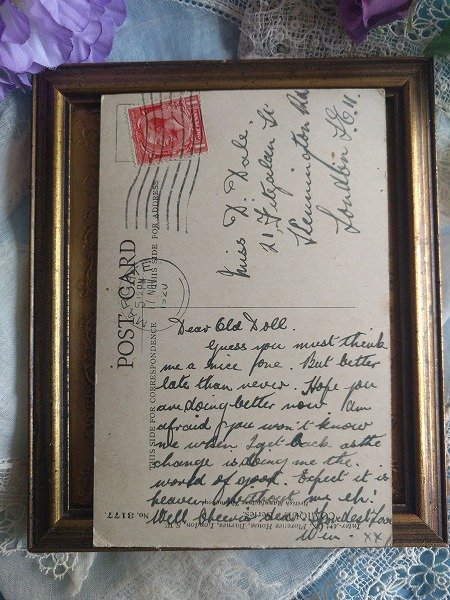 POST CARD
THIS SIDE FOR ADDRESS
THIS SIDE FOR CORRESPONDENCE
Miss D. Dale.
21 Fitzalan St
Kennington Rd
London S.E. 11
1920
Dear Old Doll.
Guess you must think
me a nice one. But better
late than never. Hope you
are doing better now. Am
afraid you won't know
me when I get back as the
change is doing me the
world of good. Expect it is
heaven without me eh!
Well Cheerio dear Fondest love
Win. xx
Inter-Art Co., Florence House, Barnes, London, S.W.
No. 3177